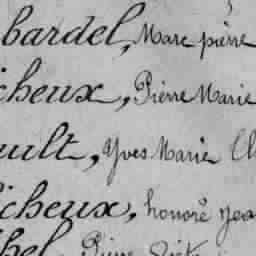 bardel, Marc pierre
cheux, Pierre Marie
ult, Yves Marie
icheux, honoré
hel, Pierre